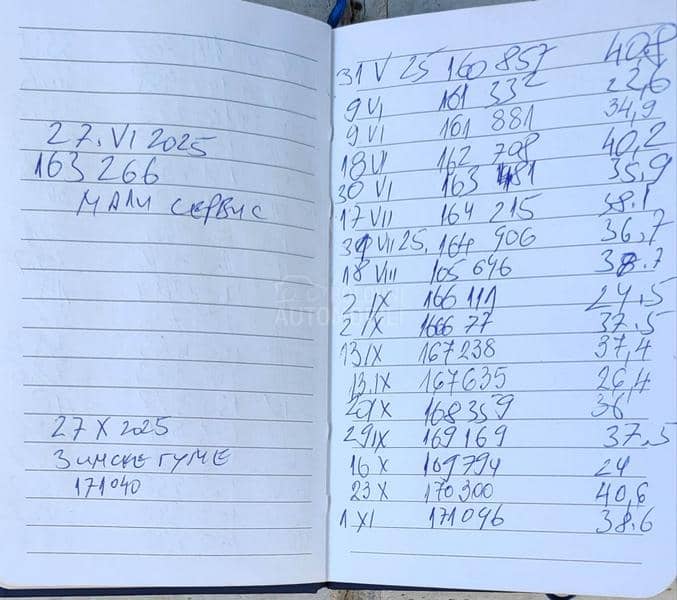 27. VI 2025
163 266
МАЛИ СЕРВИС
27 X 2025
ЗИМСКЕ ГУМЕ
171040
31 V 25 160 857 40,8
9 VI 161 332 22,6
9 VI 161 881 34,9
18 VI 162 708 40,2
30 VI 163 481 35,9
17 VII 164 215 38.1
31 VII 25. 164 906 36,7
18 VIII 165 646 38.7
2 IX 166 111 24,5
2 IX 166677 37.5
13 IX 167238 37,4
13. IX 167635 26,4
20 IX 168359 36
29 IX 169169 37,5
16 X 169794 24
23 X 170300 40,6
1 XI 171096 38.6